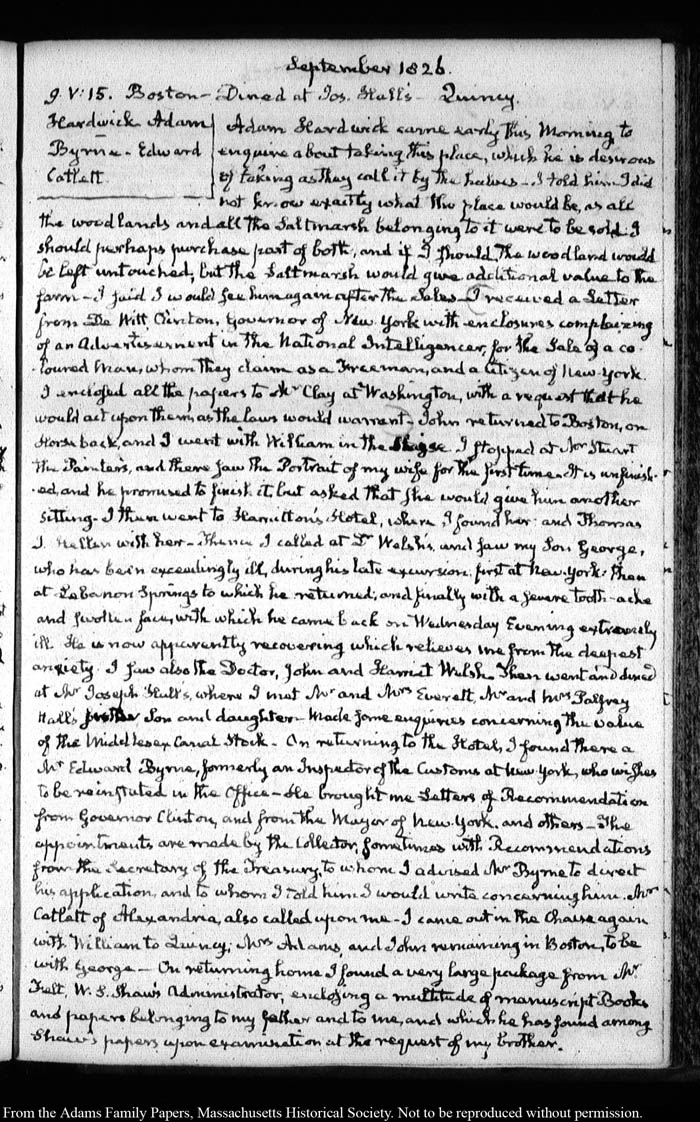 September 1826.
9. V:15. Boston – Dined at Jos. Hall's – Quincy.
Hardwick Adam
Byrne – Edward
Catlett.
Adam Hardwick came early this Morning to
enquire about taking this place, which he is desirous
of taking as they call it by the halves – I told him I did
not know exactly what the place would be, as all
the woodlands and all the Saltmarsh belonging to it were to be sold. I
should perhaps purchase part of both, and if I should, the woodland would
be left untouched; but the Saltmarsh would give additional value to the
farm – I said I would see him again after the Sales – I received a Letter
from De Witt Clinton, Governor of New York with enclosures complaining
of an Advertisement in the National Intelligencer, for the Sale of a co
loured Man, whom they claim as a Freeman, and a Citizen of New-York.
I enclosed all the papers to Mr Clay at Washington, with a request that he
would act upon them, as the laws would warrant – John returned to Boston, on
Horseback, and I went with William in the I stopped at Mr Stuart
the Painter's, and there saw the Portrait of my wife for the first time – It is unfinish
ed, and he promised to finish it, but asked that she would give him another
sitting – I then went to Hamilton's Hotel, where I found her: and Thomas
J. Hellen with her – Thence I called at Dr Welsh's, and saw my Son George,
who has been exceedingly ill, during his late excursion; first at New-York: then
at Lebanon Springs to which he returned; and finally with a severe tooth-ache
and swollen face, with which he came back on Wednesday Evening extremely
ill. He is now apparently recovering which relieves me from the deepest
anxiety. I saw also the Doctor, John and Harriet Welsh. Then went and dined
at Mr Joseph Hall's, where I met Mr and Mrs Everett, Mr and Mrs Palfrey
Hall's Son and daughter – Made some enquiries concerning the value
of the Middlesex Canal Stock – On returning to the Hotel, I found there a
Mr Edward Byrne, formerly an Inspector of the Customs at New York, who wishes
to be reinstated in the Office – He brought me Letters of Recommendation
from Governor Clinton, and from the Mayor of New-York, and others – The
appointments are made by the Collector, sometimes with Recommendations
from the Secretary of the Treasury, to whom I advised Mr Byrne to direct
his application, and to whom I told him I would write concerning him. Mr
Catlett of Alexandria, also called upon me – I came out in the Chaise again
with William to Quincy; Mrs Adams, and John remaining in Boston, to be
with George – On returning home I found a very large package from Mr
Felt, W. S. Shaw's Administrator, enclosing a multitude of manuscript Books
and papers belonging to my father and to me, and which he has found among
Shaw's papers upon examination at the request of my brother.
From the Adams Family Papers, Massachusetts Historical Society. Not to be reproduced without permission.